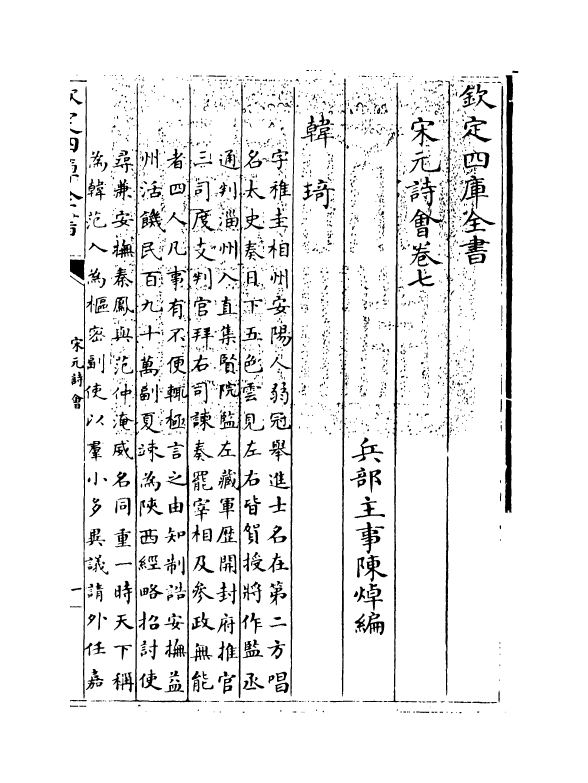 欽定四庫全書
宋元詩㑹卷七
兵部主事陳焯編
韓琦
字稚圭相州安陽人弱冠舉進士名在第二方唱
名太史奏日下五色雲見左右皆賀授將作監丞
通判淄州入直集賢院監左藏軍歴開封府推官
三司度支判官拜右司諫奏罷宰相及參政無能
者四人凡事有不便輒極言之由知制誥安撫益
州活饑民百九十萬副夏竦為陝西經略招討使
尋兼安撫秦鳳與范仲淹威名同重一時天下稱
為韓范入為樞密副使以羣小多異議請外任嘉
欽定四庫全書
宋元詩㑹
一